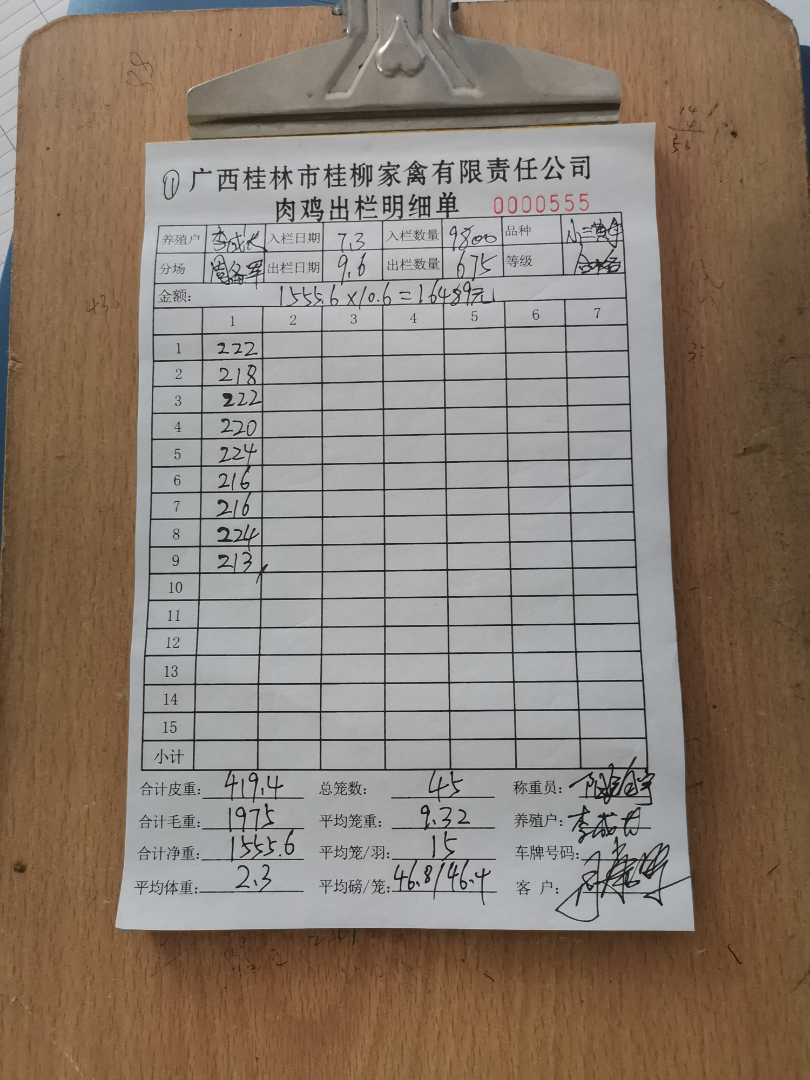 ① 广西桂林市桂柳家禽有限责任公司
肉鸡出栏明细单 0000555
养殖户 李成 入栏日期 7.3 入栏数量 9800 品种 小三黄
分场 出栏日期 9.6 出栏数量 675 等级
金额: 1555.6×10.6=16489元
1 2 3 4 5 6 7
1 222
2 218
3 222
4 220
5 224
6 216
7 216
8 224
9 213
10
11
12
13
14
15
小计
合计皮重: 419.4 总笼数: 45 称重员:
合计毛重: 1975 平均笼重: 9.32 养殖户: 李成
合计净重: 1555.6 平均笼/羽: 15 车牌号码:
平均体重: 2.3 平均磅/笼: 46.8/46.4 客 户: